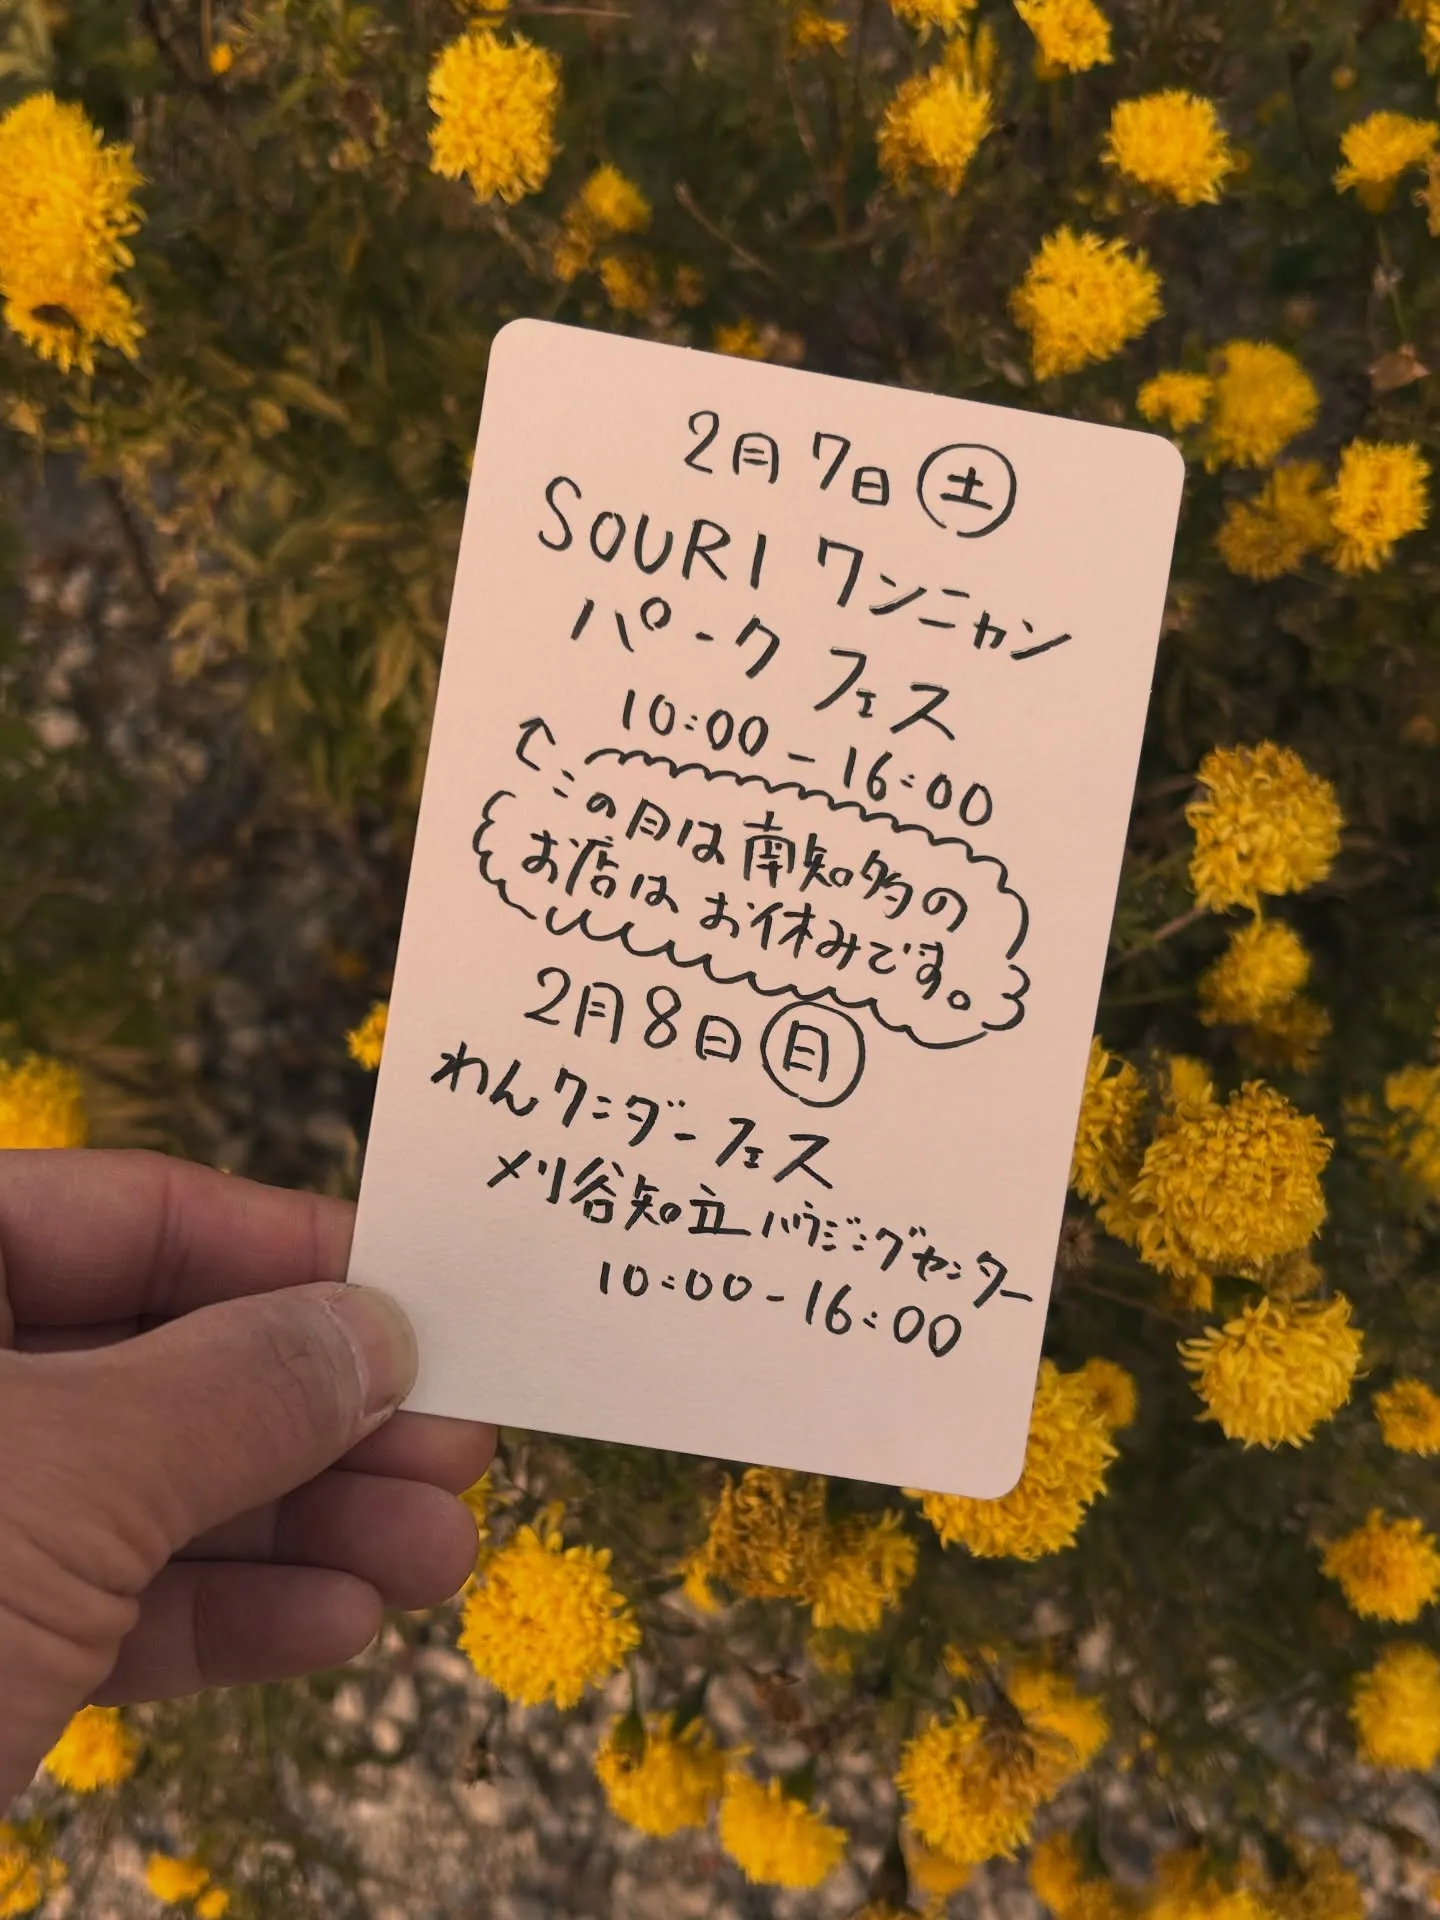 2月7日㊏
SOURI ワンニャン
パーク フェス
10:00-16:00
この日は南知多の
お店はお休みです。
2月8日㊐
わんワンダーフェス
刈谷知立ハウジングセンター
10:00-16:00